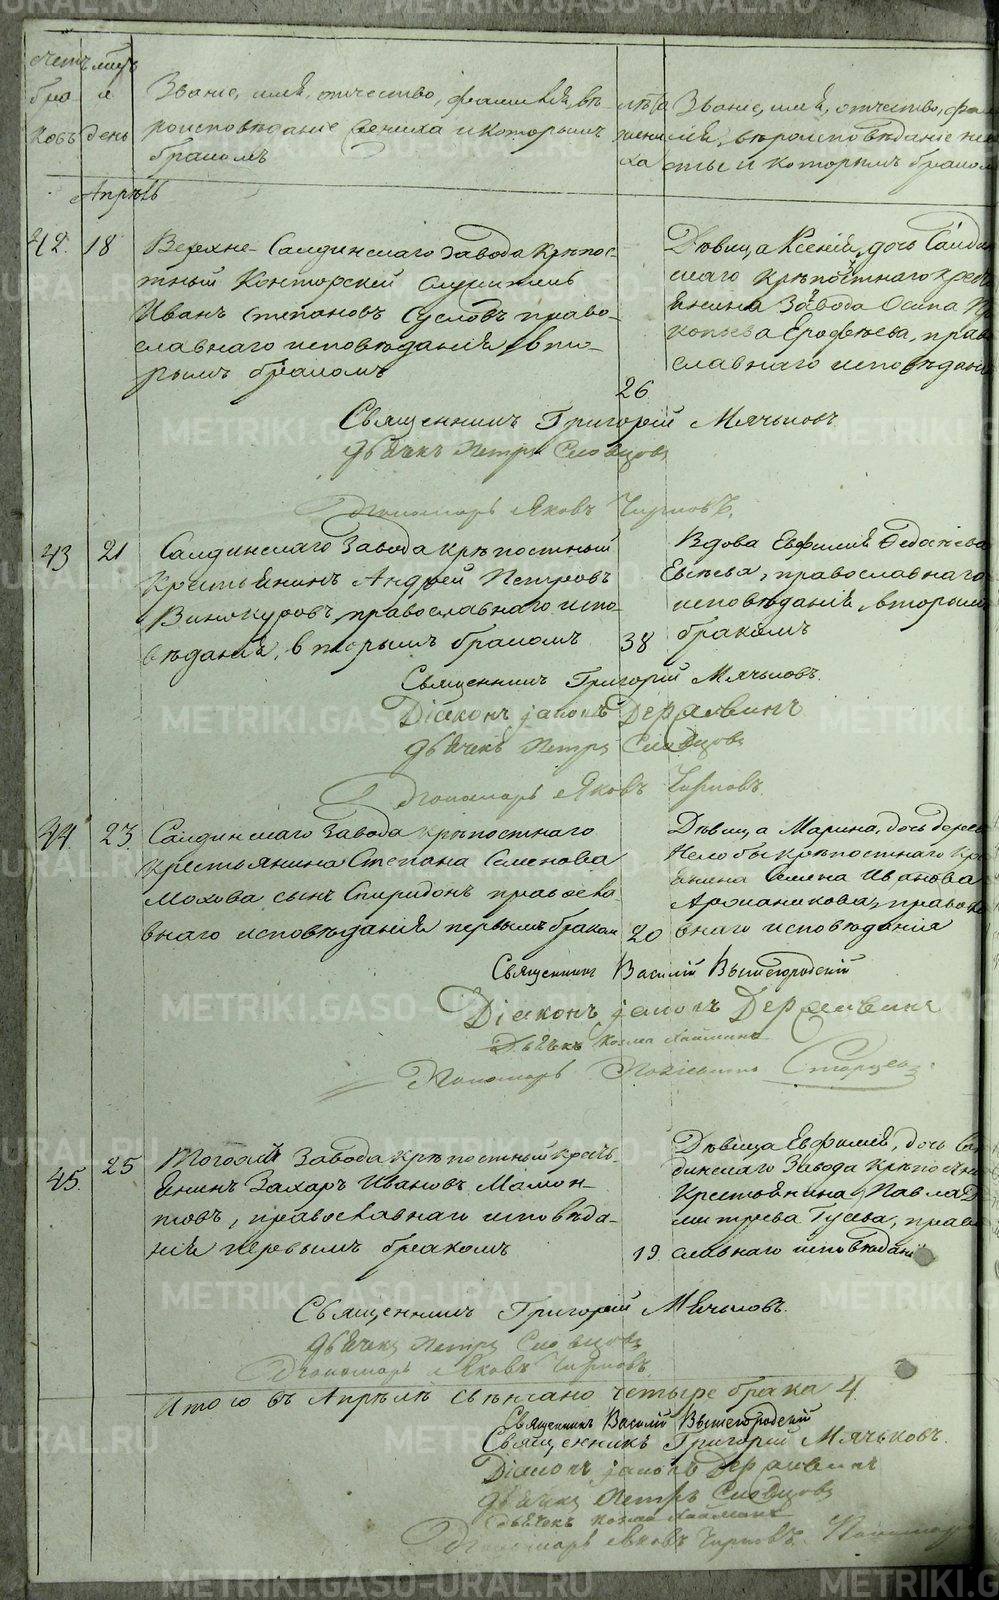 Счетъ мцъ
бра и Званіе, имя, отчество, фамилія, вѣ- лѣта Званіе, имя, отчество, фами
ковъ день роисповѣданіе жениха и которымъ жени лія, вѣроисповѣданіе не
бракомъ ха сты и которымъ браком
Апрѣль
42. 18 Верхне-Салдинскаго завода крѣпос-
тный Конторскій служитель
Иванъ Степановъ Сусловъ право-
славнаго исповѣданія, вто-
рымъ бракомъ
26
Дѣвица Ксенія, дочь Салдин
скаго крѣпостнаго кресть
янина Завода Осипа Про
копьева Ерофѣева, право
славнаго исповѣдані
Священникъ Григорій Мячьковъ
Дьячекъ Петръ Словцовъ
Пономарь Яковъ Чирковъ.
43 21 Салдинскаго Завода крѣпостный
Крестьянинъ Андрей Петровъ
Винокуровъ, православнаго испо-
вѣданія, вторымъ бракомъ
38
Вдова Евфимія
православнаго
исповѣданія, вторымъ
бракомъ
Священникъ Григорій Мячьковъ.
Діаконъ Державинъ
Дьячекъ Петръ Словцовъ
Пономарь Яковъ Чирковъ
44. 23 Салдинскаго Завода крѣпостнаго
Крестьянина Степана Семенова
Мохова сынъ Спиридонъ правосла-
внаго исповѣданія первымъ браком
20
Дѣвица Марина, дочь дерев
Нелобы крѣпостнаго кре
янина Семена Иванова
правосла
внаго исповѣданія
Священникъ Василій Вышегородскій
Діаконъ Державинъ
Дьячекъ Козма
Пономарь Старцевъ
45. 25 Тогоже Завода крѣпостный кресть-
янинъ Захаръ Ивановъ Мамон-
товъ, православнаго исповѣда-
нія первымъ бракомъ
19.
Дѣвица Евфимія, дочь Сал
динскаго Завода Крѣпостна
Крестьянина Павла Д
митрева Гусева, право
славнаго исповѣданія
Священникъ Григорій Мячьковъ.
Дьячекъ Петръ Словцовъ
Пономарь Яковъ Чирковъ
Итого въ Апрѣлѣ свѣнчано четыре брака 4.
Священникъ Василій Вышегородскій
Священникъ Григорій Мячьковъ.
Діаконъ Державинъ
Дьячекъ Петръ Словцовъ
Дьячекъ Козма
Пономарь Яковъ Чирковъ. Пономарь
METRIKI.GASO-URAL.RU